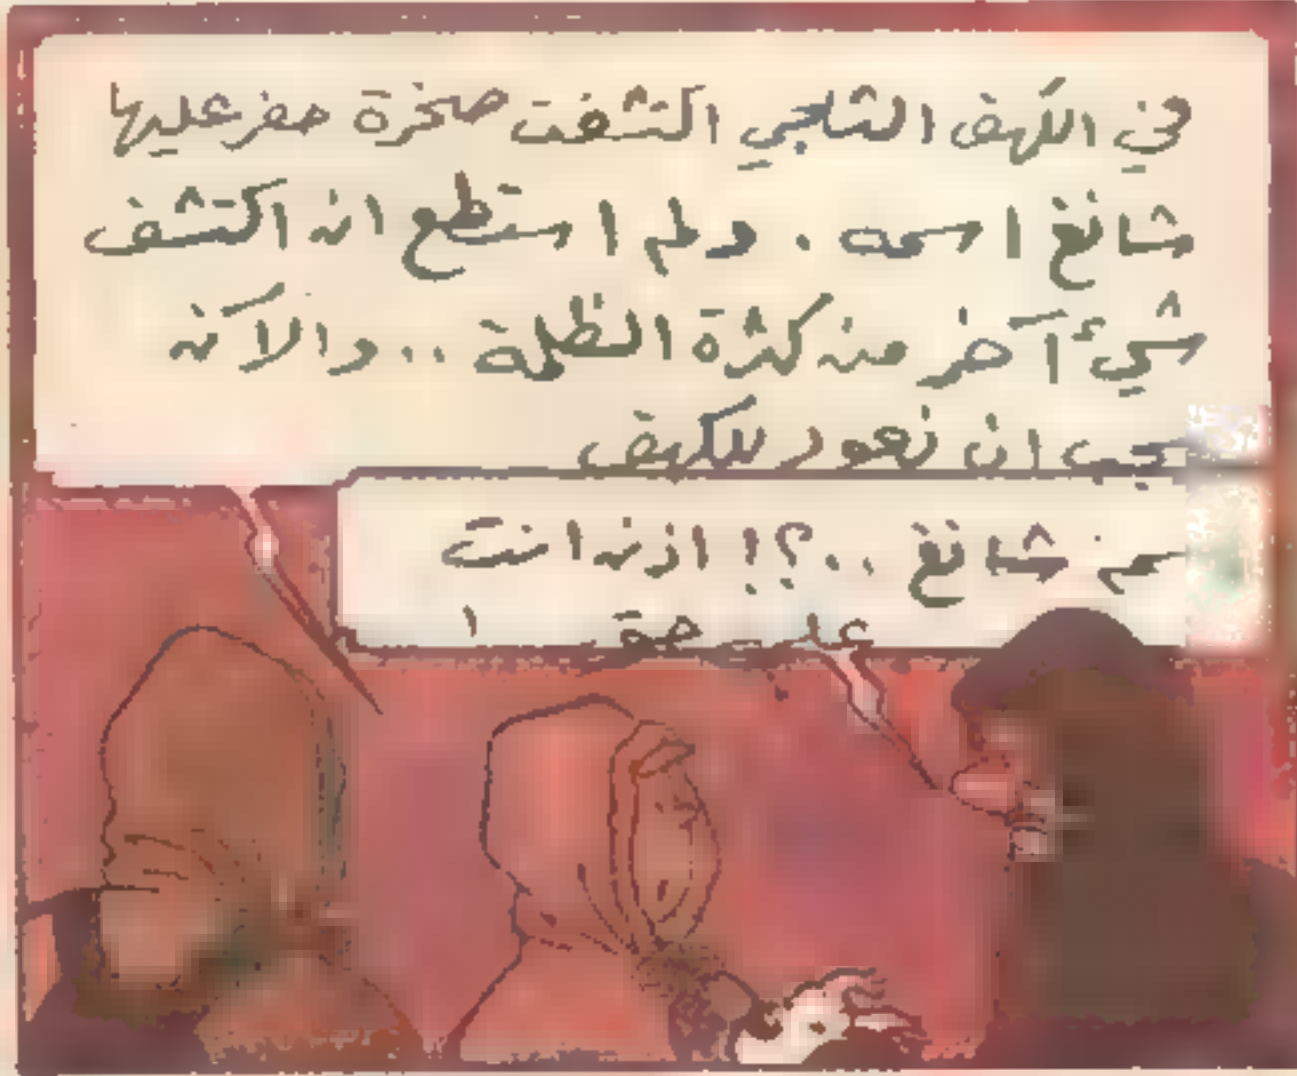 في الكهف الثلجي اكتشفت صخرة حفر عليها
شانغ اسمه . ولم استطع ان اكتشف
شيئ آخر من كثرة الظلمة .. والآن
يجب ان نعود للكهف
شانغ ..؟! اذن انت
على حق !